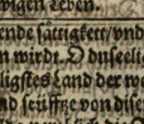 wigen Leben.
ende sättigkeit/vnd
n wirdt. O vnseelic
ligstes Land der we
nd seüfftze von dise